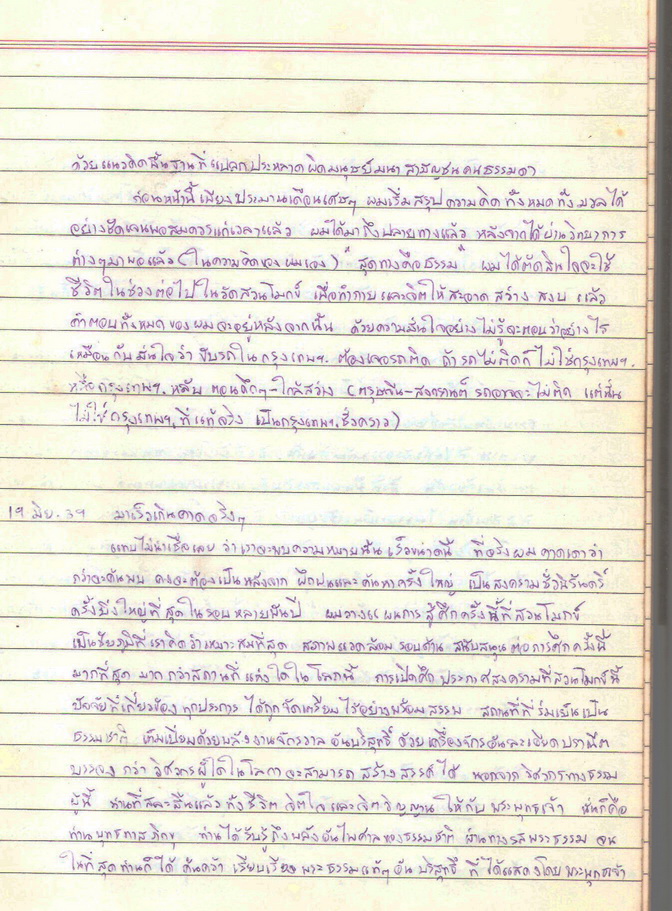 ด้วยแนวคิดพื้นฐานที่แปลกประหลาดผิดมนุษย์มนาสามัญชนคนธรรมดา
ก่อนหน้านี้เพียงประมาณเดือนเศษๆ ผมเริ่มสรุปความคิดทั้งหมดทั้งมวลได้
อย่างชัดเจนพอสมควรแก่เวลาแล้ว ผมได้มาถึงปลายทางแล้ว หลังจากได้ผ่านวิทยาการ
ต่างๆมาพอแล้ว (ในความคิดของผมเอง) "สุดทางคือธรรม" ผมได้ตัดสินใจจะใช้
ชีวิตในช่วงต่อไปในวัดสวนโมกข์ เพื่อทำกายและจิตให้สะอาด สว่าง สงบ แล้ว
คำตอบทั้งหมดของผมจะอยู่หลังจากนั้น ด้วยความมั่นใจอย่างไม่รู้จะตอบว่าอย่างไร
เหมือนกับมั่นใจว่า ขับรถในกรุงเทพฯ. ต้องเจอรถติด ถ้ารถไม่ติดก็ไม่ใช่กรุงเทพฯ.
หรือกรุงเทพฯ. หลับ ตอนดึกๆ-ใกล้สว่าง (ตรุษจีน-สงกรานต์ รถอาจจะไม่ติด แต่นั่น
ไม่ใช่กรุงเทพฯ. ที่แท้จริง เป็นกรุงเทพฯ. ชั่วคราว)
19 มิย. 39 มาเร็วเกินคาดจริงๆ
แทบไม่น่าเชื่อเลย ว่าเราจะพบความหมายนั้นเร็วขนาดนี้ ที่จริงผมคาดเดาว่า
กว่าจะค้นพบ คงจะต้องเป็นหลังจาก ฝึกฝนและค้นหาครั้งใหญ่ เป็นสงครามชั่วนิรันดร์
ครั้งยิ่งใหญ่ที่สุดในรอบหลายพันปี ผมวางแผนการสู้ศึกครั้งนี้ที่สวนโมกข์
เป็นชัยภูมิที่เราคิดว่าเหมาะสมที่สุด สภาพแวดล้อมรอบด้าน สนับสนุนต่อการศึกครั้งนี้
มากที่สุด มากกว่าสถานที่แห่งใดในโลกนี้ การเปิดศึก ประกาศสงครามที่สวนโมกข์นี้
ปัจจัยที่เกี่ยวข้องทุกประการ ได้ถูกจัดเตรียมไว้อย่างพร้อมสรรพ สถานที่ที่ร่มเย็นเป็น
ธรรมชาติ เต็มเปี่ยมด้วยพลังงานจักรวาล อันบริสุทธิ์ ด้วยเครื่องจักรอันละเอียดปราณีต
บรรจง กว่าวิศวกรผู้ใดในโลกาจะสามารถสร้างสรรค์ได้ นอกจากวิศวกรทางธรรม
ผู้นี้ ท่านที่สละสิ้นแล้วทั้งชีวิต จิตใจ และจิตวิญญาณ ให้กับพระพุทธเจ้า นั่นก็คือ
ท่านพุทธทาสภิกขุ ท่านได้รับรู้ถึงพลังอันไพศาลของธรรมชาติ ผ่านทางรสพระธรรม จน
ในที่สุดท่านก็ได้ค้นคว้า เรียบเรียงพระธรรมแท้ๆอันบริสุทธิ์ ที่ได้แสดงโดยพระพุทธเจ้า